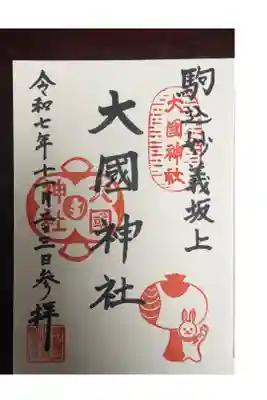 駒込妙義坂上
大國神社
大國神社
大國神社
令和七年十一月三日参拝